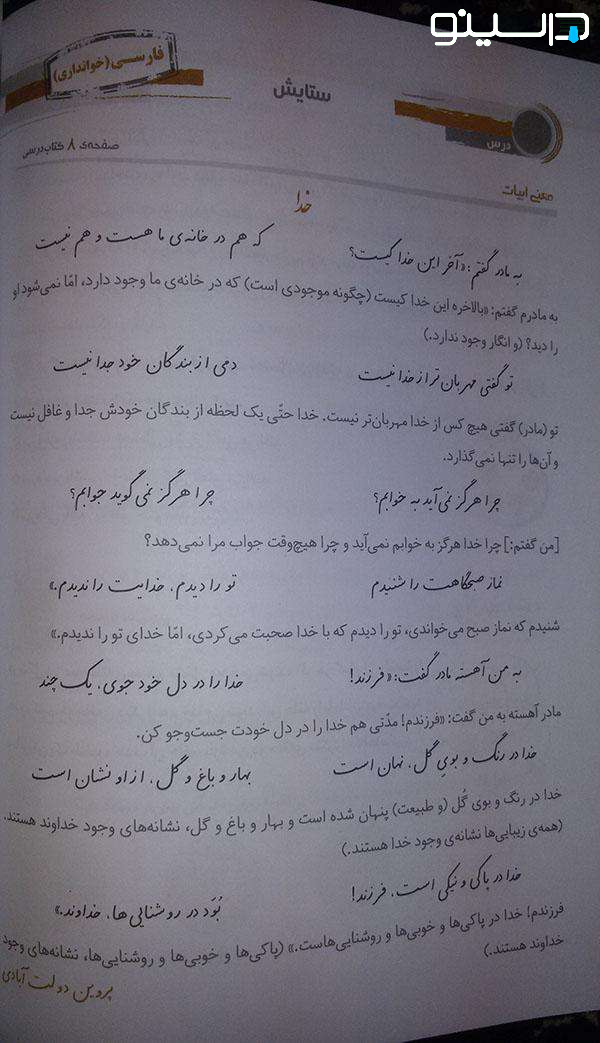 درسینو
فارسی (خوانداری)
ستایش
درس
صفحه‌ی ۸ کتاب درسی
معنی ابیات
خدا
به مادر گفتم: «آخر این خدا کیست؟ که هم در خانه‌ی ما هست و هم نیست
به مادرم گفتم: «بالاخره این خدا کیست (چگونه موجودی است) که در خانه‌ی ما وجود دارد، امّا نمی‌شود او
را دید؟ (و انگار وجود ندارد.)
تو گفتی مهربان‌تر از خدا نیست دمی از بندگان خود جدا نیست
تو (مادر) گفتی هیچ کس از خدا مهربان‌تر نیست. خدا حتّی یک لحظه از بندگان خودش جدا و غافل نیست
و آن‌ها را تنها نمی‌گذارد.
چرا هرگز نمی‌آید به خوابم؟ چرا هرگز نمی‌گوید جوابم؟
[من گفتم:] چرا خدا هرگز به خوابم نمی‌آید و چرا هیچ‌وقت جواب مرا نمی‌دهد؟
نماز صبحگاهت را شنیدم تو را دیدم، خدایت را ندیدم.»
شنیدم که نماز صبح می‌خواندی، تو را دیدم که با خدا صحبت می‌کردی، امّا خدای تو را ندیدم.»
به من آهسته مادر گفت: «فرزند! خدا را در دل خود جوی، یک چند
مادر آهسته به من گفت: «فرزندم! مدّتی هم خدا را در دل خودت جست‌وجو کن.
خدا در رنگ و بوی گل، نهان است بهار و باغ و گل، از او نشان است
خدا در رنگ و بوی گُل (و طبیعت) پنهان شده است و بهار و باغ و گل، نشانه‌های وجود خداوند هستند.
(همه‌ی زیبایی‌ها نشانه‌ی وجود خدا هستند.)
خدا در پاکی و نیکی است، فرزند! بُوَد در روشنایی‌ها، خداوند.»
فرزندم! خدا در پاکی‌ها و خوبی‌ها و روشنایی‌هاست.» (پاکی‌ها و خوبی‌ها و روشنایی‌ها، نشانه‌های وجود
خداوند هستند.)
پروین دولت آبادی